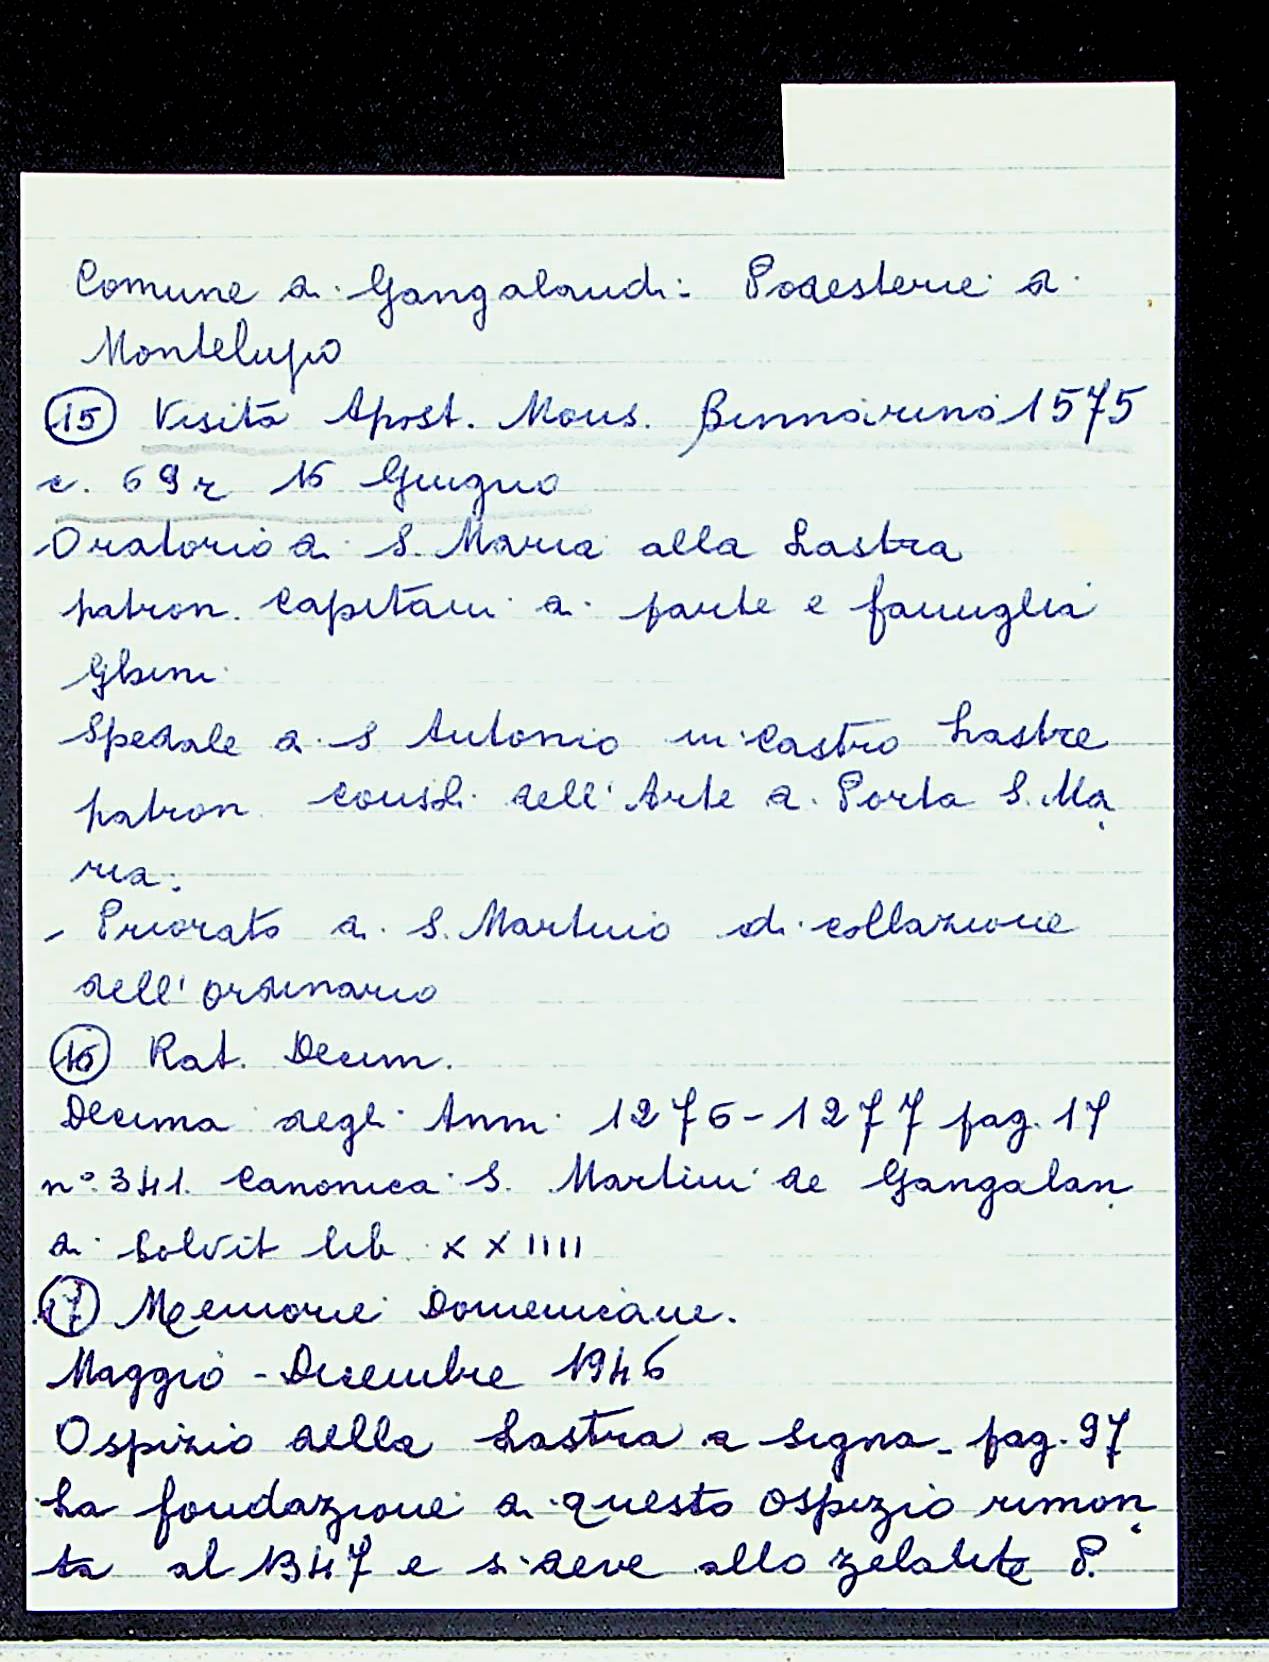 Comune di Gangalandi: Podesterie di
Montelupo
(15) Visita Apost. Mons. Binnarino 1575
c. 69 r 16 Giugno
Oratorio di S. Maria alla Lastra
patron. Capitani di parte e famiglia
Ghini
Spedale di S Antonio in Castro Lastre
patron consoli dell'Arte di Porta S. Ma
ria.
- Priorato di S. Martino di collazione
dell'ordinario
(16) Rat. Decim.
Decima degli Anni 1276-1277 pag. 17
n° 341. Canonica S. Martini de Gangalan
di solvit lib XXIIII
(17) Memorie Domenicane.
Maggio - Dicembre 1946
Ospizio della Lastra a Signa - pag. 97
La fondazione di questo ospizio rimon
ta al 1347 e si deve allo zelante P.